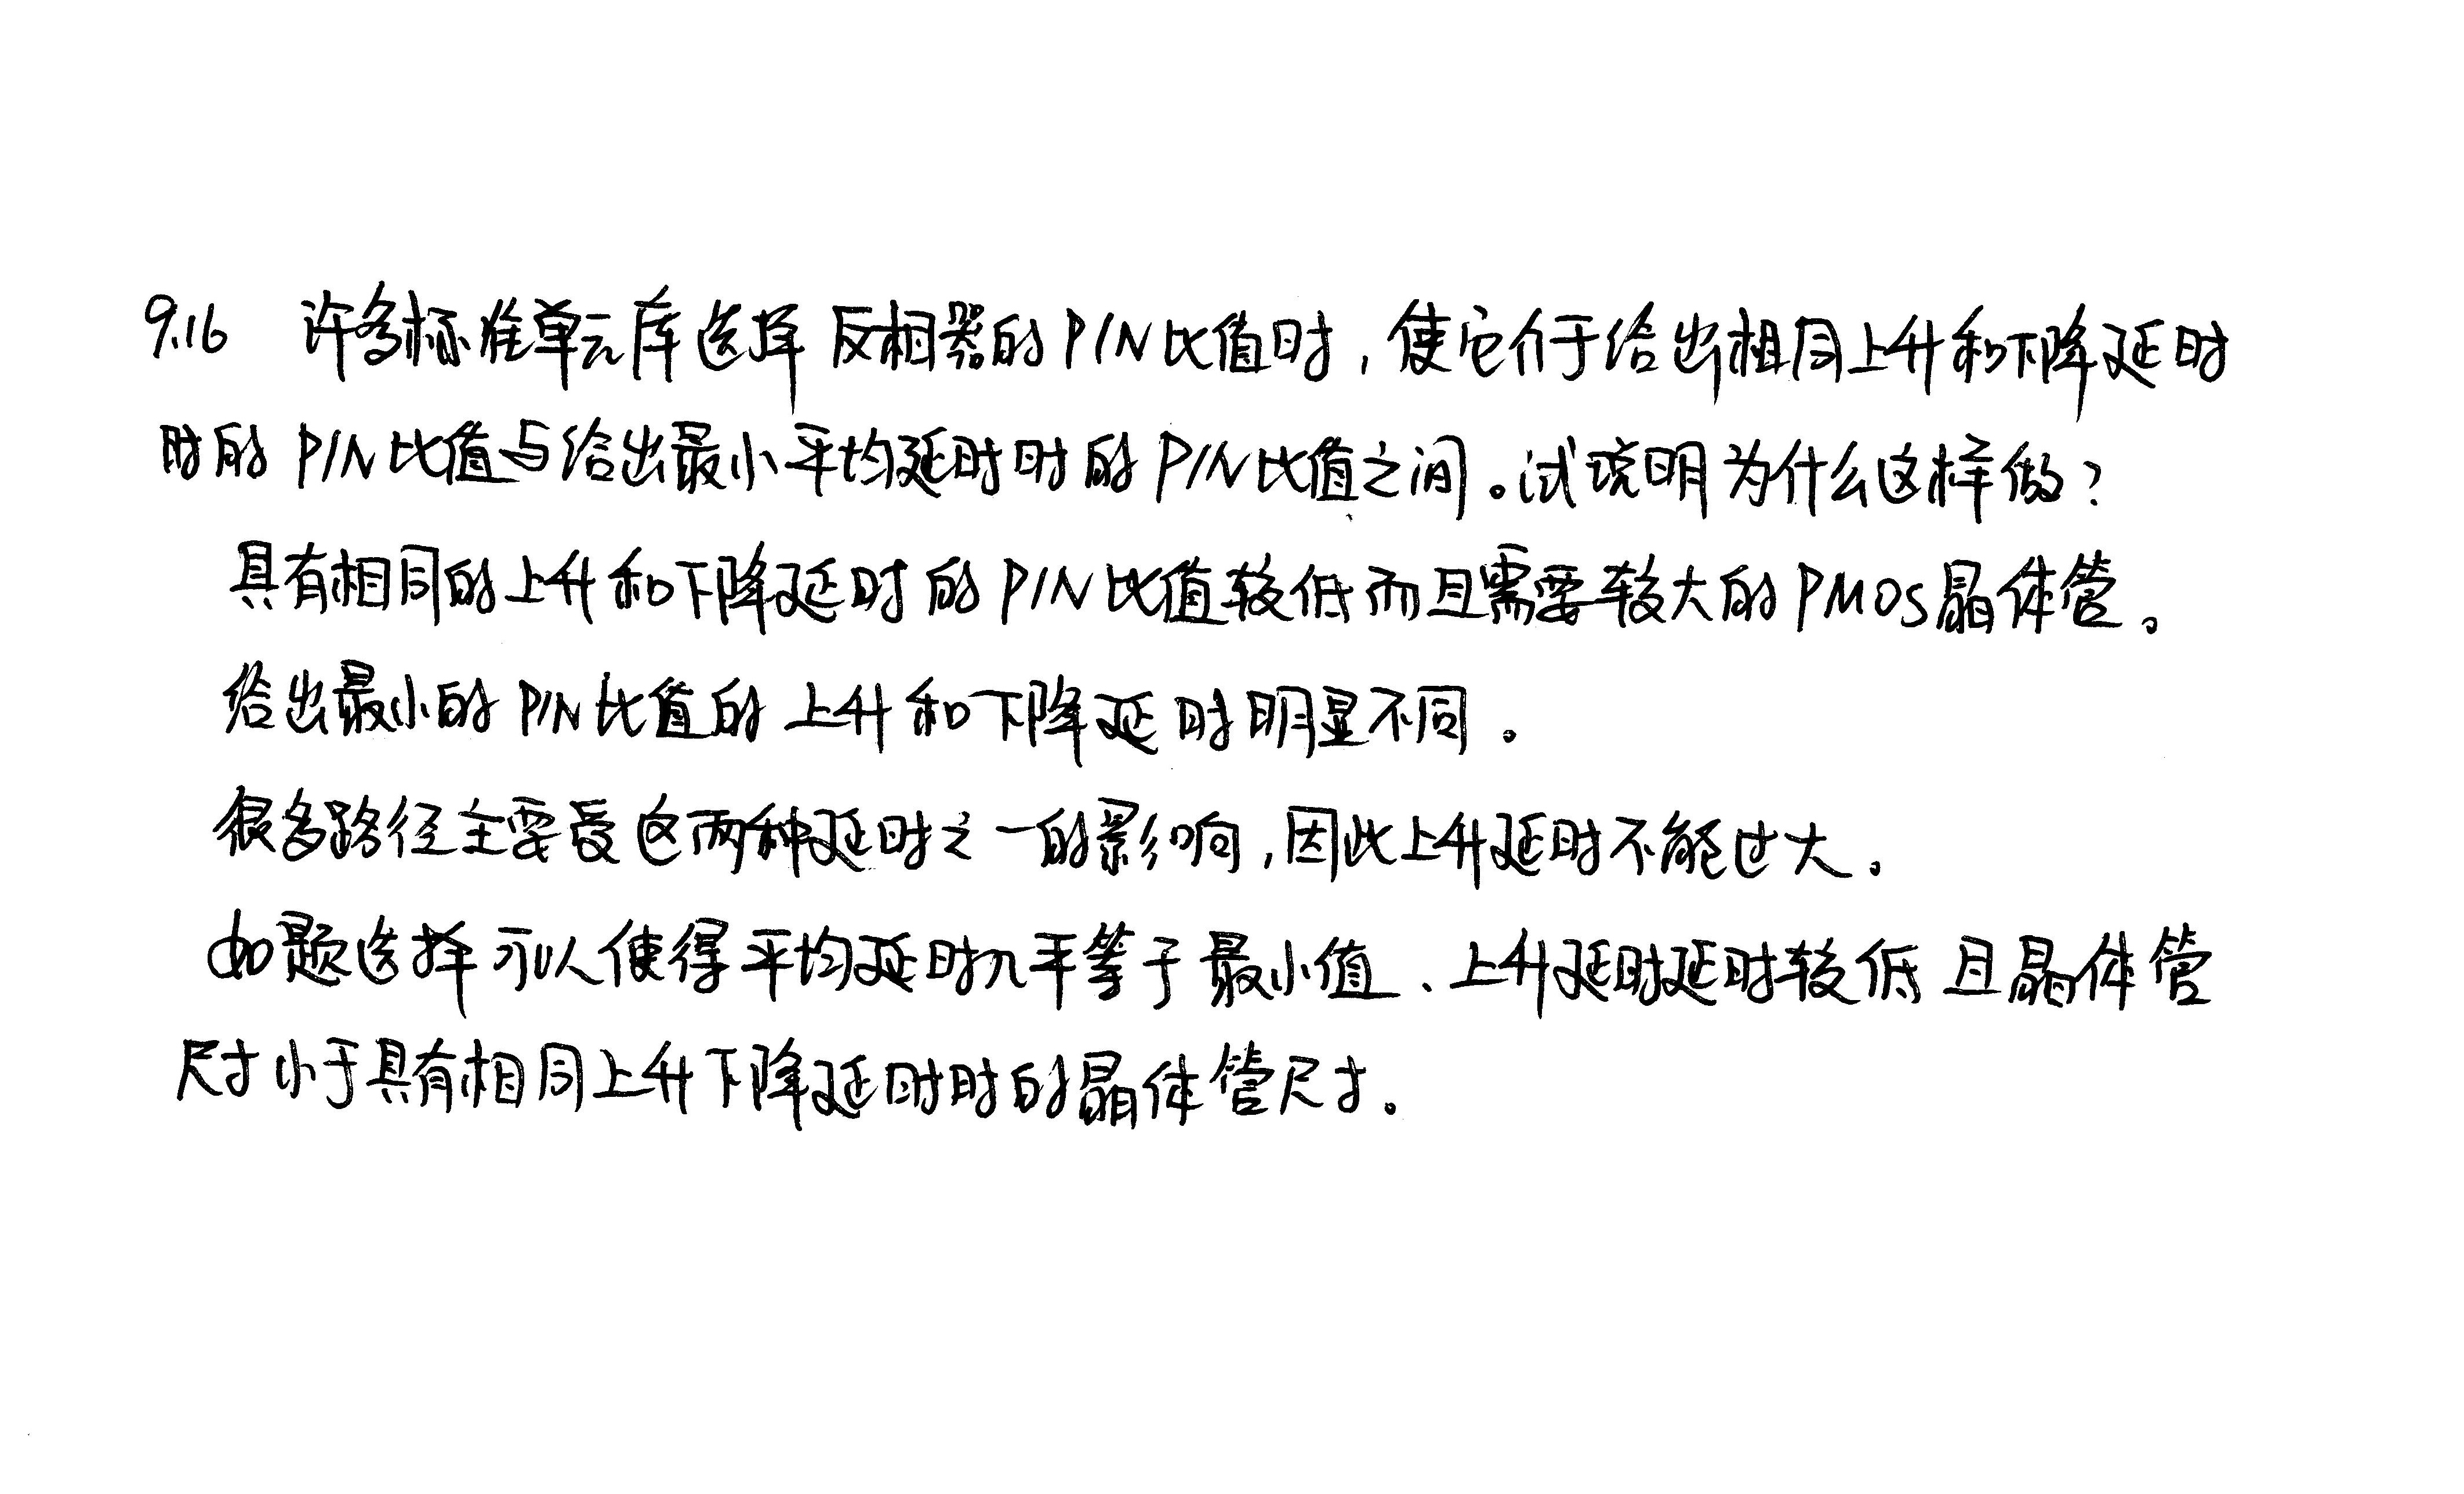 9.16 许多标准单元库选择反相器的P/N比值时，使它介于给出相同上升和下降延时
时的P/N比值与给出最小平均延时时的P/N比值之间。试说明为什么这样做？
具有相同的上升和下降延时的P/N比值较低而且需要较大的PMOS晶体管。
给出最小的P/N比值的上升和下降延时明显不同。
很多路径主要受这两种延时之一的影响，因此上升延时不能过大。
如题选择可以使得平均延时几乎等于最小值、上升延时延时较低且晶体管
尺寸小于具有相同上升下降延时时的晶体管尺寸。